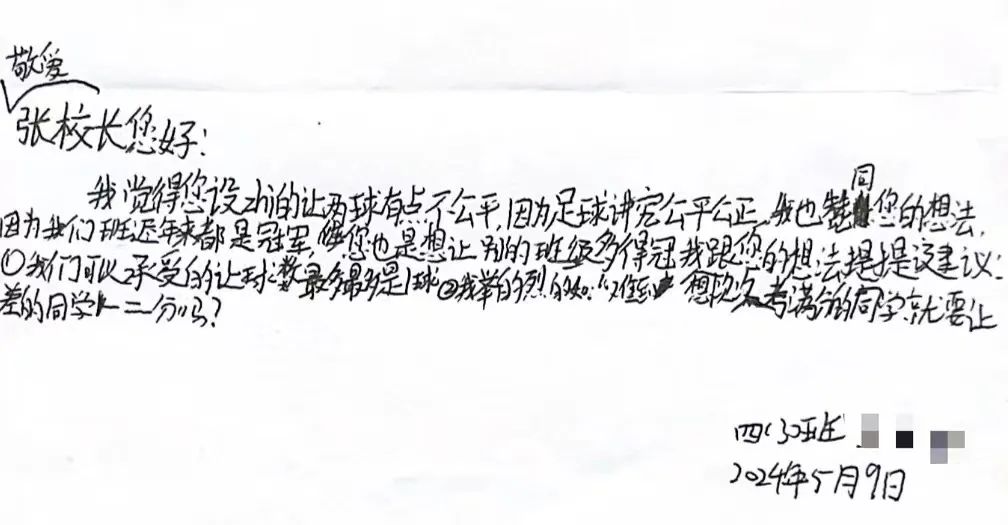 敬爱
张校长您好：
我觉得您设zhi的让两球有点不公平，因为足球讲究公平公正，我也赞同您的想法，
因为我们班近年来都是冠军，您也是想让别的班级多得冠我跟您的想法提提是议建议：
①我们可以承受的让球数最多最多是1球②我举的例的如：“难到 想次次考满分的同学就要让
差的同学 二分吗？
四(3)班
2024年5月9日